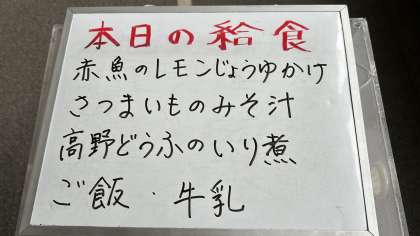 本日の給食
赤魚のレモンじょうゆかけ
さつまいものみそ汁
高野どうふのいり煮
ご飯・牛乳